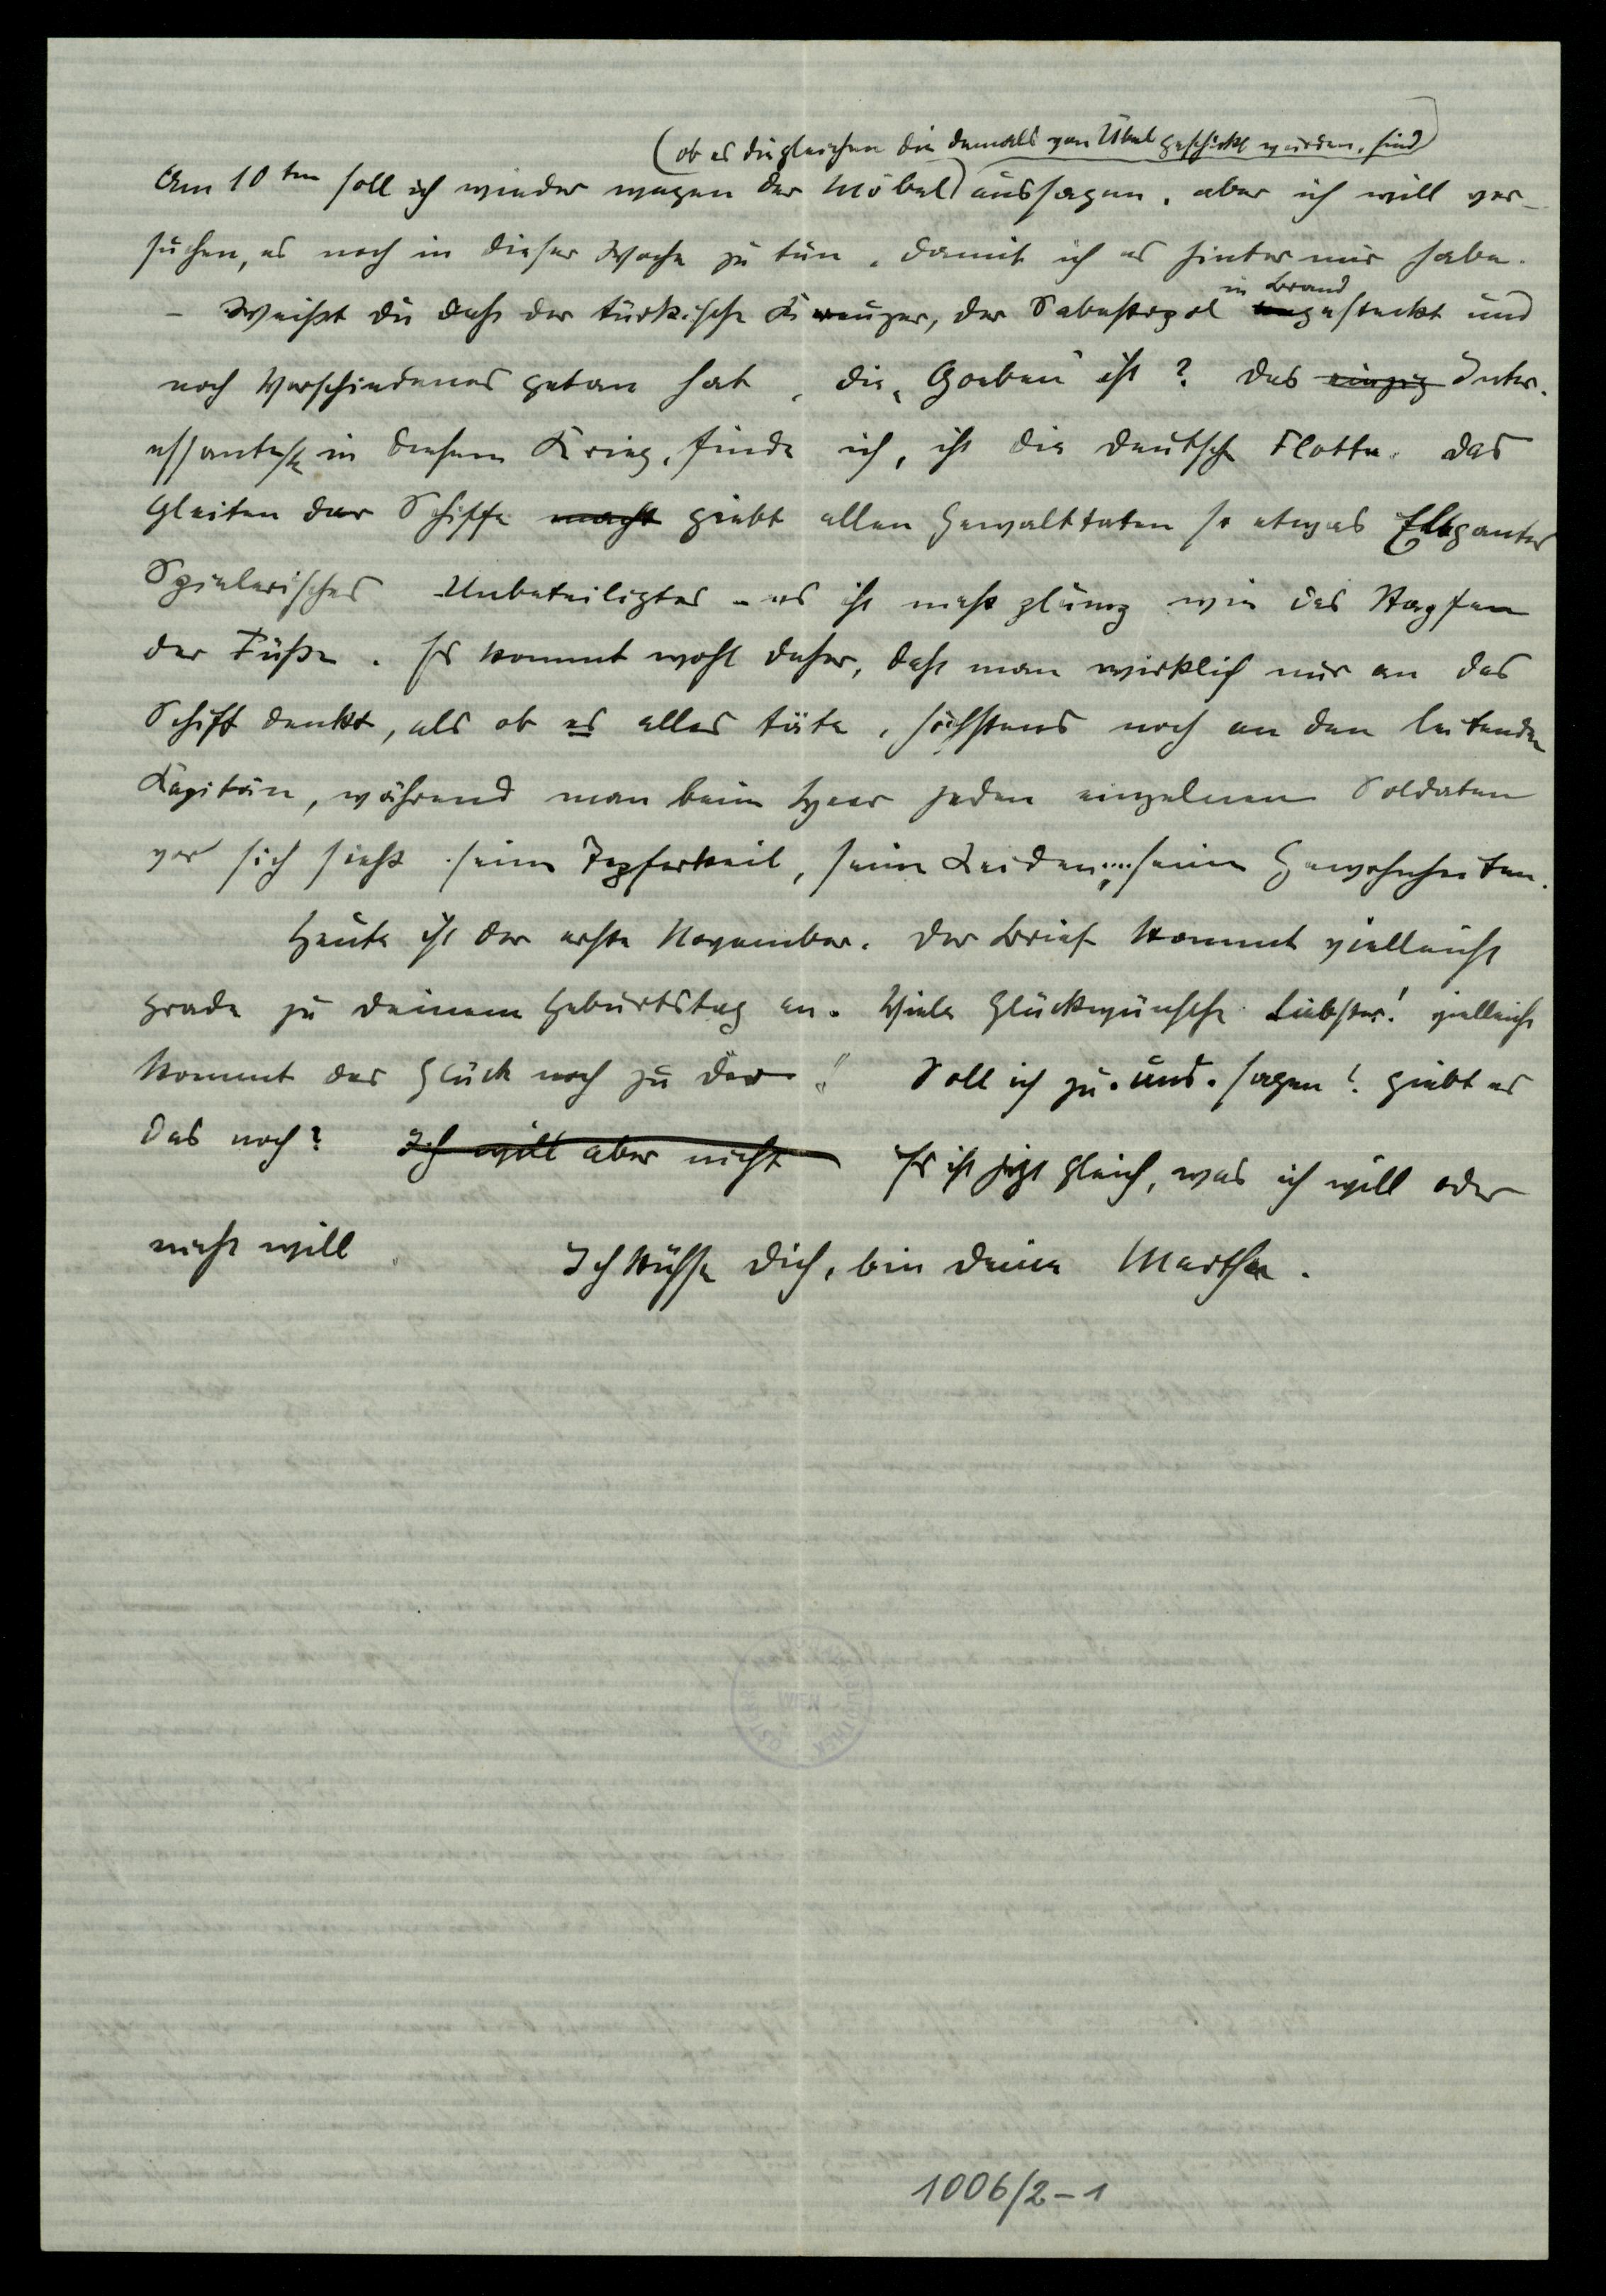 (ob es die gleichen die damals von Übel geschickt wurden, sind)
Am 10ten soll ich wieder wegen der Möbel aussagen, aber ich will ver-
suchen, es noch in dieser Woche zu tun, damit ich es hinter mir habe.
in Brand
– Weißt du dass der türkische Kreuzer, der Sebastopol gesteckt und
noch Verschiedenes getan hat, die „Goeben" ist? Das einzig Inter-
essanteste in diesem Krieg, finde ich, ist die deutsche Flotte. Das
Gleiten der Schiffe macht giebt allen Gewalttaten so etwas Elegantes
Spielerisches Unbeteiligtes – es ist nicht plump wie das Stapfen
der Füße. Es kommt wohl daher, dass man wirklich nur an das
Schiff denkt, als ob es alles täte, höchstens noch an den leitenden
Kapitän, während man beim Heer jeden einzelnen Soldaten
vor sich sieht. seine Tapferkeit, seine Leiden, .... seine Gewohnheiten.
Heute ist der erste November. Der Brief kommt vielleicht
grade zu deinem Geburtstag an. Viele Glückwünsche Liebster! vielleicht
kommt das Glück noch zu dir Soll ich zu „uns" sagen? giebt es
das noch? Ich will aber nicht Es ist jetzt gleich, was ich will oder
nicht will
Ich küsse dich, bin deine Martha.
WIEN
1006/2-1